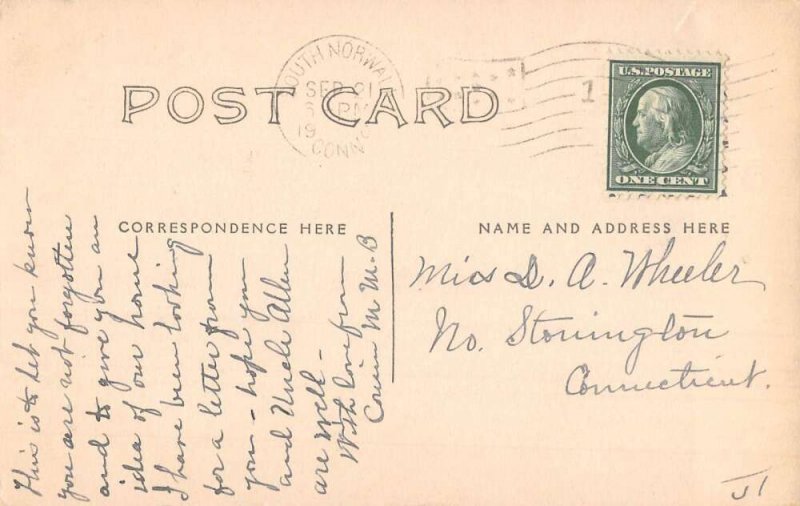 POST CARD
SOUTH NORWAL
SEP 21
PM
19
CONN.
1
U.S. POSTAGE
ONE CENT
CORRESPONDENCE HERE
NAME AND ADDRESS HERE
This is to let you know
you are not forgotten
and to give you an
idea of our home
I have been looking
for a letter from
you - hope you
and Uncle Allen
are well -
With love from
Cousin M M. B
Miss D. A. Wheeler
No. Stonington
Connecticut.
J1